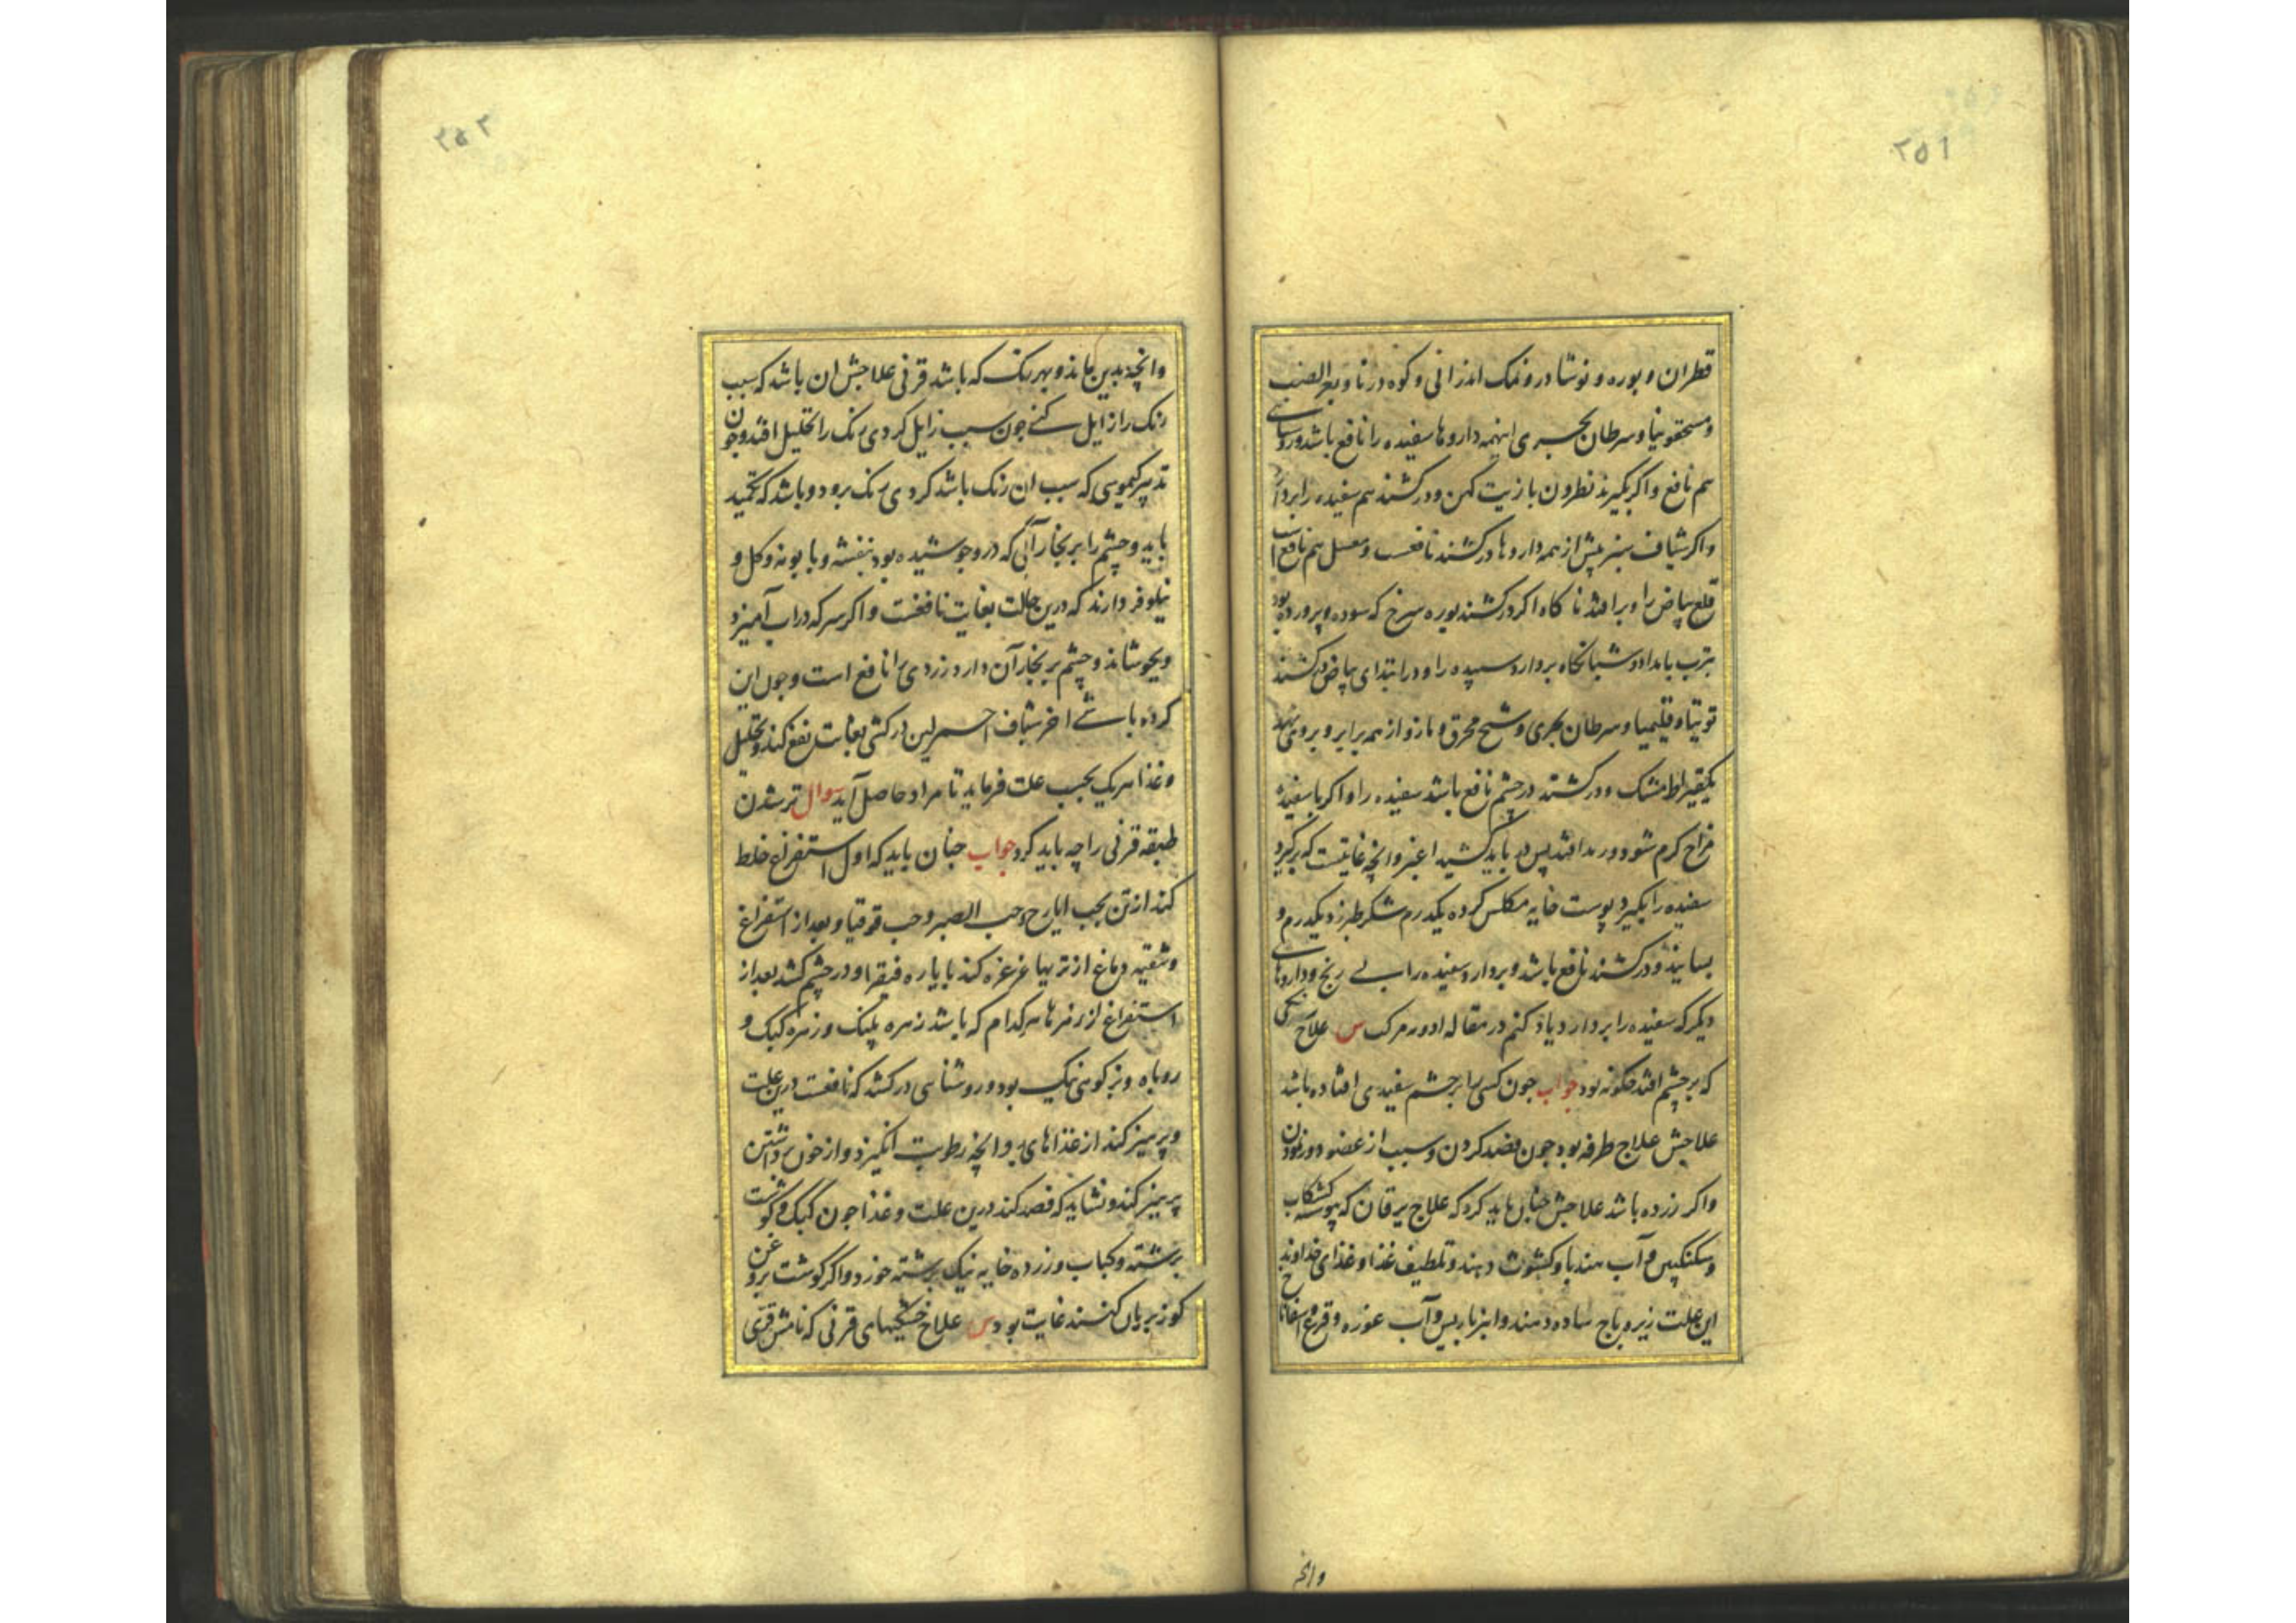 ۲۵۱
قطران و بوره و نوشادر و نمک اندرانی و کوه درنا و بعر الضب
و مسحقونیا و سرطان بحری اینهمه داروها سفیده را نافع باشد و روسای
هم نافع و اکر بکیرند نطرون با زیت کهن و درکشند هم سفیده را بردارد
واکر شیاف سبز پیش از همه داروها درکشند نافعست و معسل هم نافع است
قلع بیاض را و برافتد ناکاه اکر درکشند بوره سرخ که سوده و پرورده بود
بترب بامداد و شبانکاه بردارد سپیده را و در ابتدای بیاض درکشند
توتیا و قلیمیا و سرطان بحری و شیح محرق و مازو از همه برابر و برو نهد
یکقیراط مشک و درکشند در چشم نافع باشد سفیده را و اکر با سفیده
مزاج کرم شود و درد افتد پس باید کشید اغبر وانچه غایتست که برکیرد
سفیده را بکیرد پوست خایه مکلس کرده یکدرم شکر طبرزد یکدرم و
بسایند و درکشند نافع باشد و بردارد سفیده را بی رنج و داروهای
دیکر که سفیده را بردارد یاد کنم در مقاله ادویه مرکب س علاج رنکی
که بر چشم افتد چکونه بود جواب جون کسی را بر چشم سفیدی افتاده باشد
علاجش علاج طرفه بود جون فصد کردن و سبب از عضو دور نمودن
واکر زرده باشد علاجش چنان باید کرد که علاج یرقان که پیوسته کشکاب
و سکنکبین و آب هندبا و کشوث دهند و تلطیف غذا و غذای خداوند
این علت زیره باج ساده دهند و انبرباریس و آب غوره و قرع و اسفاناخ
وانچه
۲۵۲
وانچه بدین ماند و بهر رنک که باشد قرنی علاجش ان باشد که سبب
رنک را زایل کنی جون سبب زایل کردی رنک را تحلیل افتد و جون
تدبیر کیموسی که سبب ان رنک باشد کردی رنک برود و باشد که تکمید
باید و چشم را بر بخار آبی که درو جوشیده بود بنفشه و بابونه و کل و
نیلوفر دارند که درین حالت بغایت نافعست و اکر سرکه در آب آمیزد
و بجوشاند و چشم بر بخار آن دارد زردی را نافع است و جون این
کرده باشی اخر شیاف احمر لین درکشی بغایت نفع کند و تحلیل
و غذا هر یک بحسب علت فرماید تا مراد حاصل آید سوال تر شدن
طبقه قرنی را چه باید کرد جواب چنان باید که اول استفراغ خلط
کند از تن بحب ایارج و حب الصبر و حب قوقیا و بعد از استفراغ
و تنقیه دماغ از تریها غرغره کند بایاره فیقرا و در چشم کشد بعد از
استفراغ از زهرها هر کدام که باشد زهره پلنک و زهره کبک و
روباه و بز کوهی نیک بود و روشنایی درکشد که نافعست درین علت
و پرهیز کند از غذاهای و انچه رطوبت انکیزد و از خون برداشتن
پرهیز کند و نشاید که فصد کند درین علت و غذا جون کبک و کوشت
برشته و کباب و زرده خایه نیک برشته خورد و اکر کوشت بروغن
کوز بریان کنند غایت بود س علاج خشکیهای قرنی که نامش قری